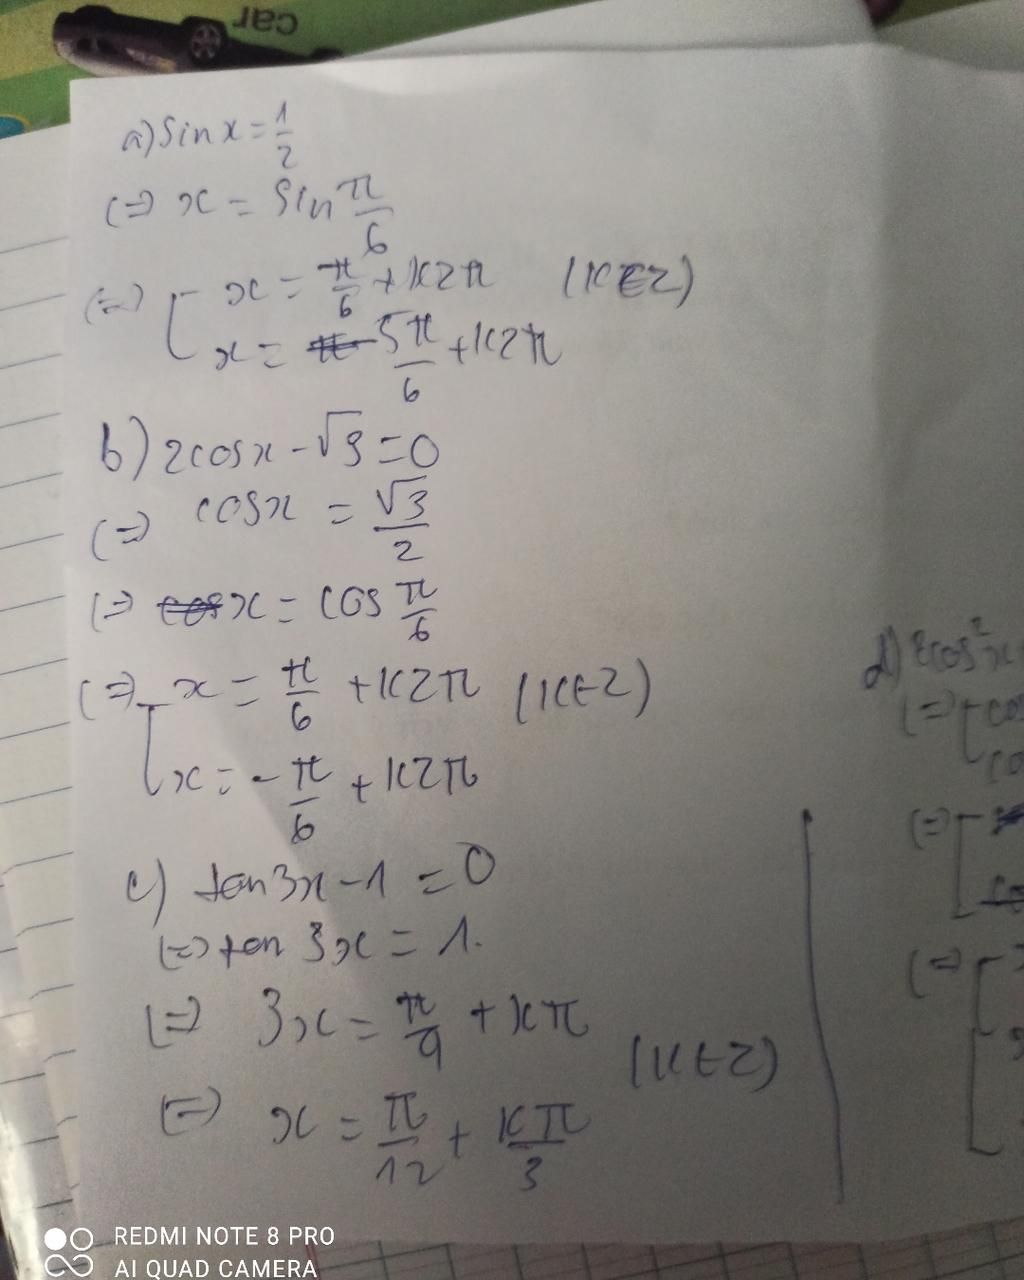 car
a) Sin x = 1/2
(=) x = Sin π/6
(=) [ x = π/6 + k2π (k∈Z)
x = 5π/6 + k2π
b) 2cosx - √3 = 0
(=) cosx = √3/2
(=) x = cos π/6
(=) [ x = π/6 + k2π (k∈Z)
x = -π/6 + k2π
c) tan3x - 1 = 0
(=) tan 3x = 1.
(=) 3x = π/4 + kπ
(k∈Z)
(=) x = π/12 + kπ/3
d) 2cos²x
(=) [ cos
co
(=) [
co
(=) [
REDMI NOTE 8 PRO
AI QUAD CAMERA